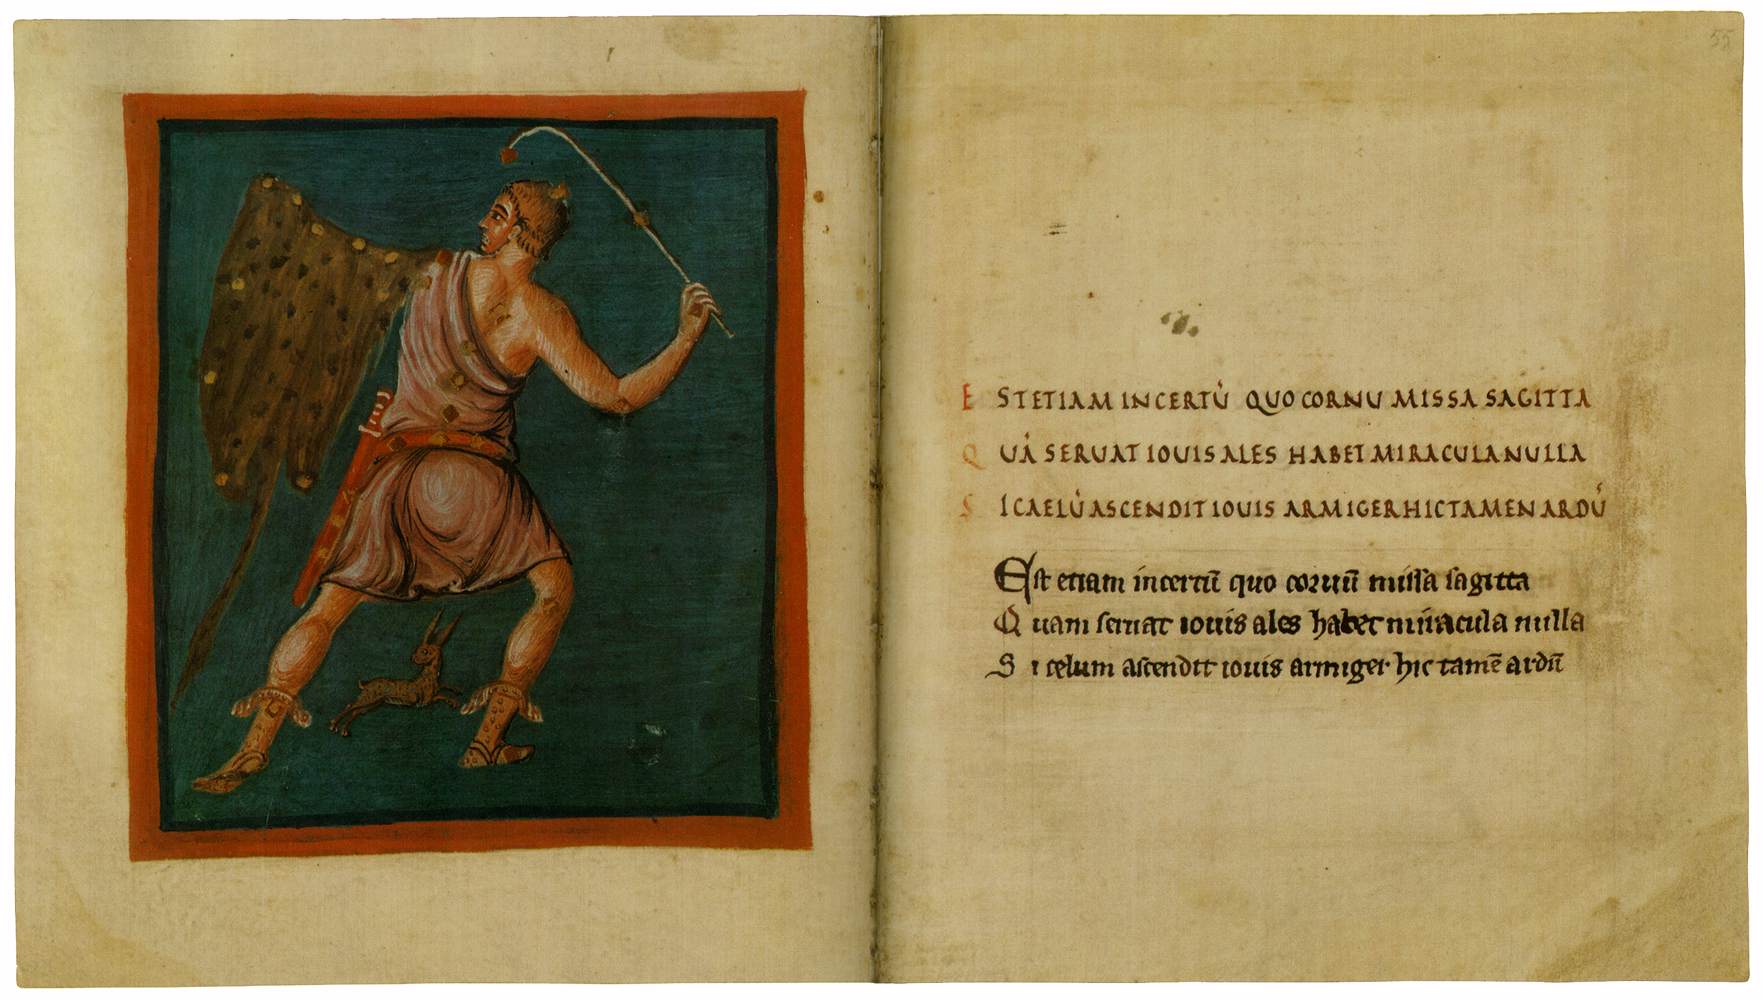 55
ESTETIAM INCERTŪ QUO CORNU MISSA SAGITTA
QUĀ SERUAT IOUIS ALES HABET MIRACULA NULLA
SICAELŪ ASCENDIT IOUIS ARMIGER HIC TAMEN ARDŪ
Est etiam incertū quo cornū missa sagitta
Quam seruat iouis ales habet miracula nulla
Si celum ascendit iouis armiger hic tamē ardū